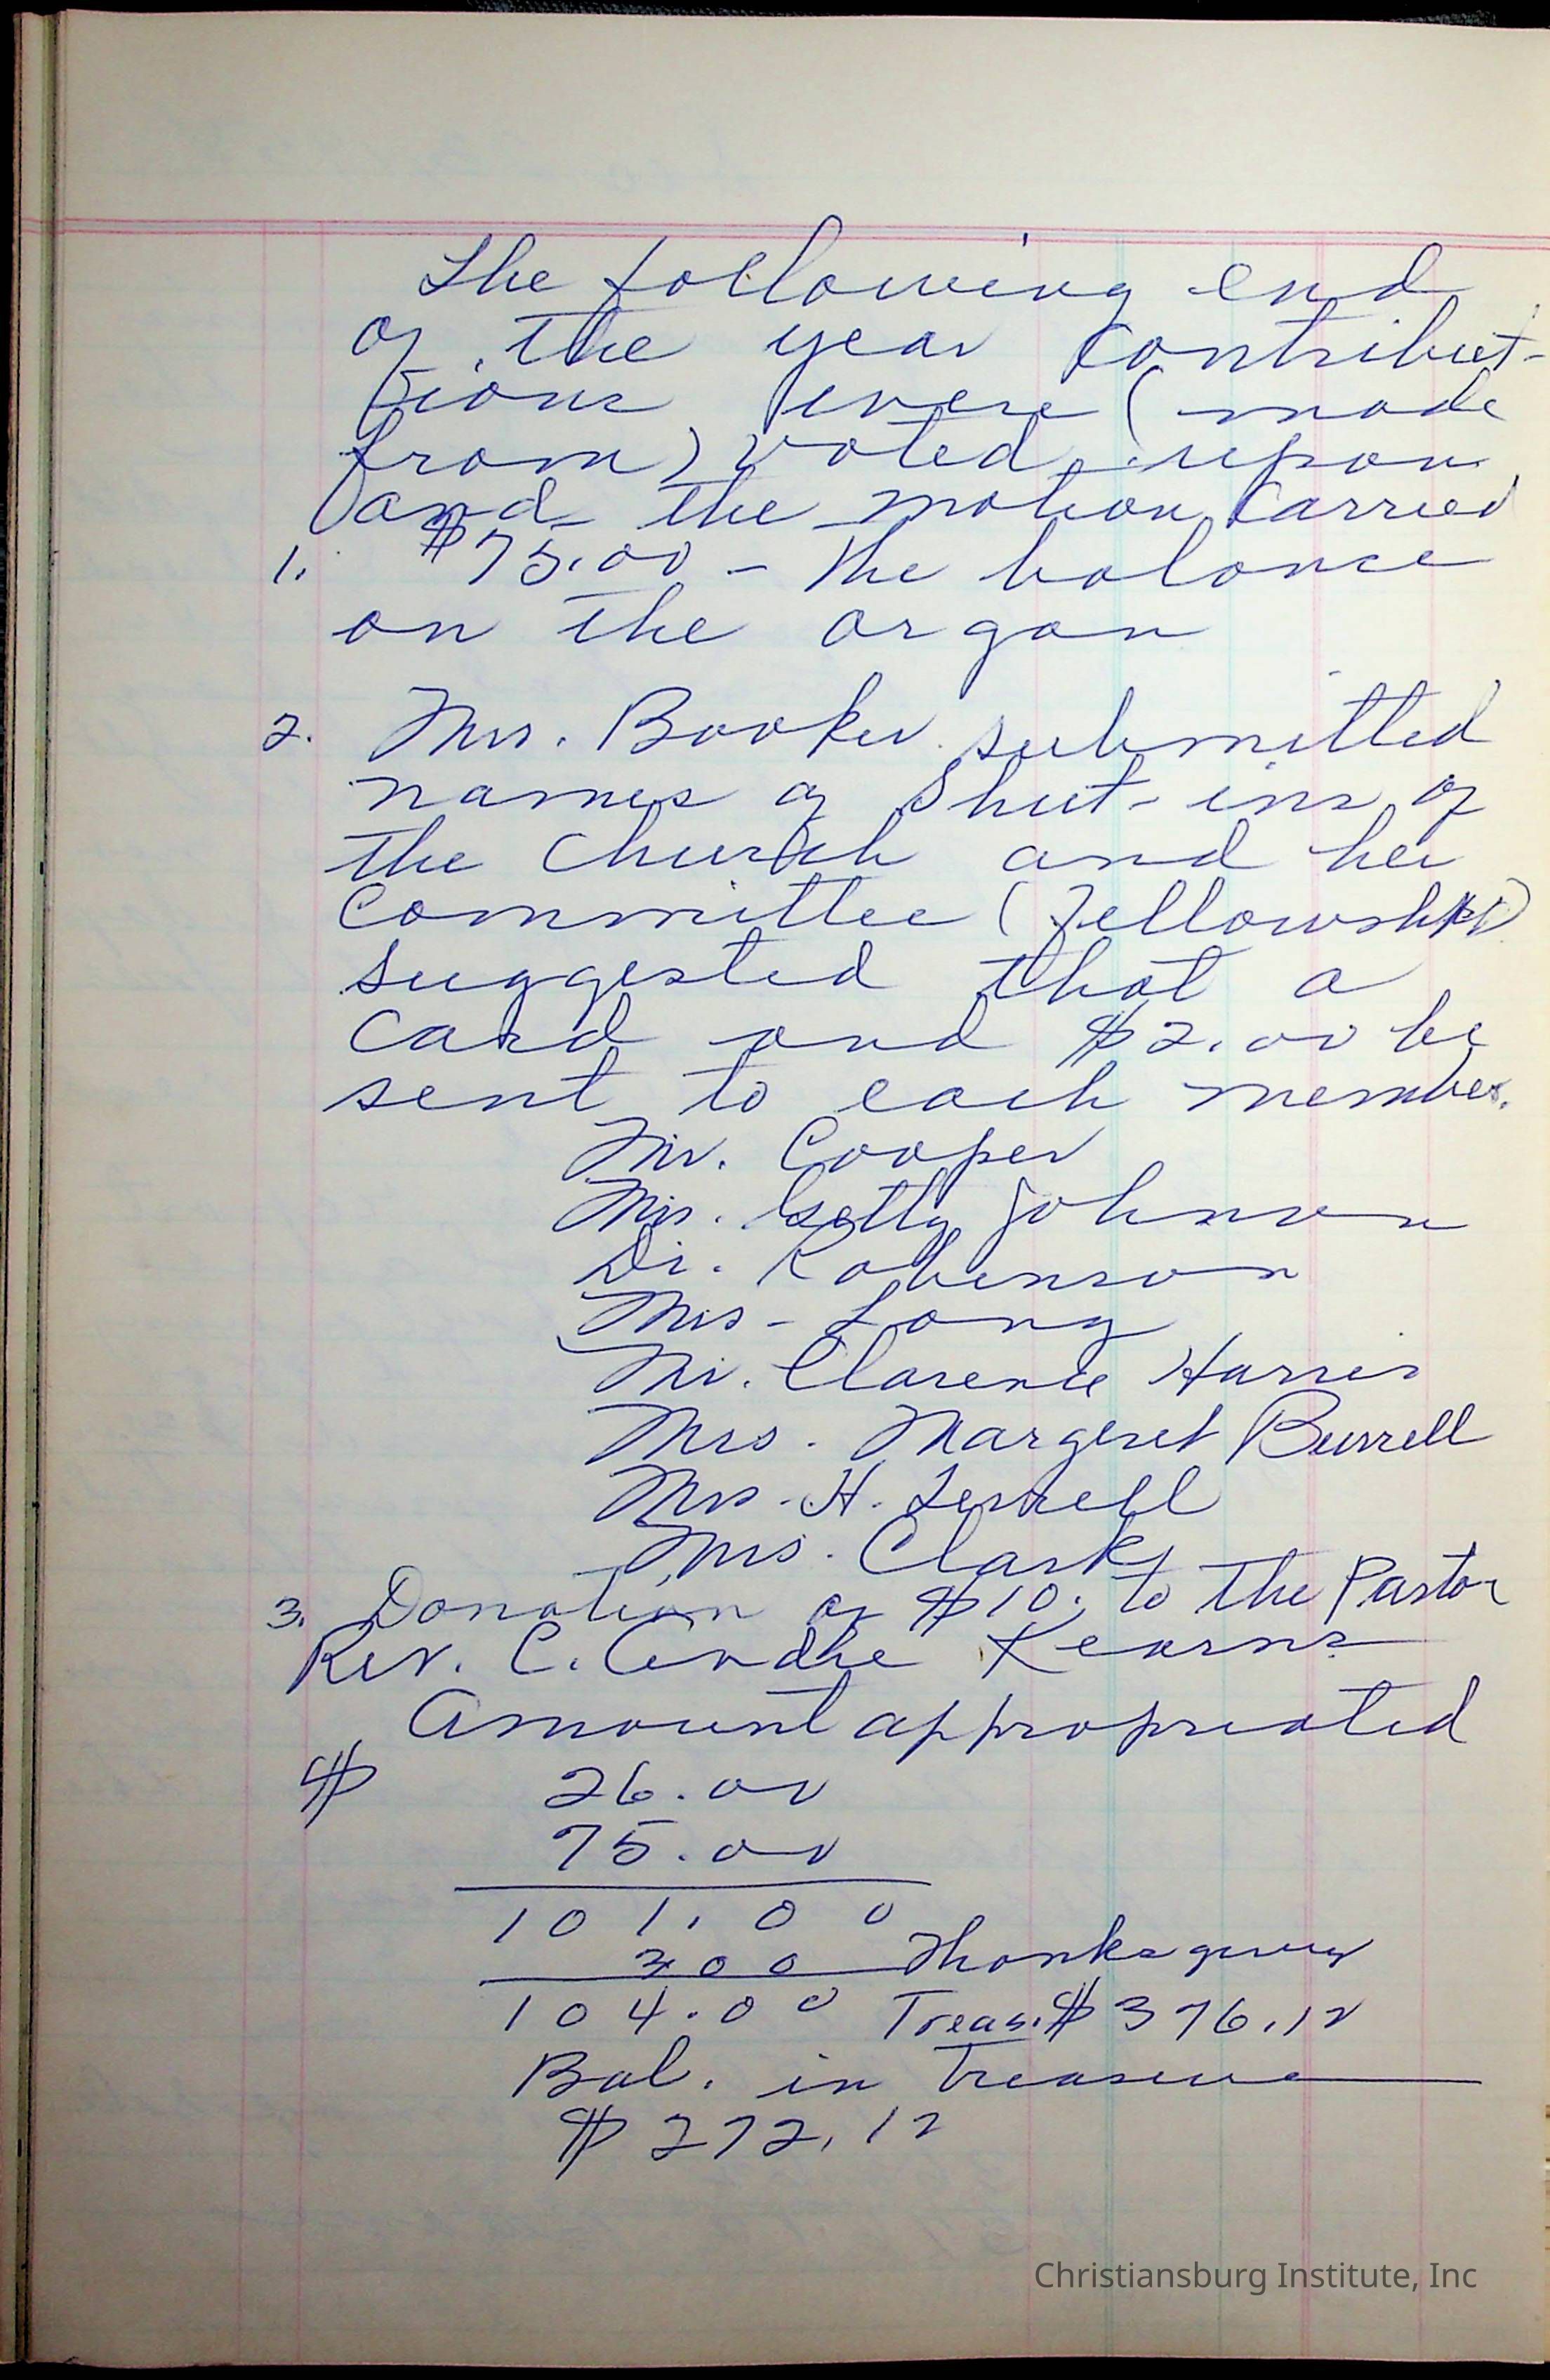 The following end
of the year Contribut-
tions were (made
from) voted upon
and the motion Carried
1. $75.00 - The balance
on the organ
2. Mrs. Booker submitted
names of Shut-ins of
the Church and her
Committee (Fellowship)
suggested that a
Card and $2.00 be
sent to each member.
Mr. Cooper
Mrs. Johnson
Dr. Robinson
Mrs - Long
Mr. Clarence Harris
Mrs. Margeret Burrell
Mrs. H.
Mrs. Clark
3. Donation of $10. to the Pastor
Rev. C. Andre Kearns
Amount appropriated
$ 26.00
75.00
101.00
3.00 Thanksgiving
104.00 Treas. $376.12
Bal. in Treasure
$272.12
Christiansburg Institute, Inc